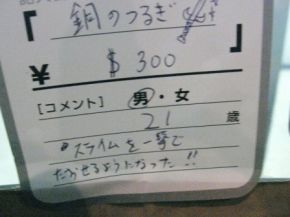 「銅のつるぎ」
¥ $300
[コメント] 男・女
21 歳
スライムを一撃で
たおせるようになった!!